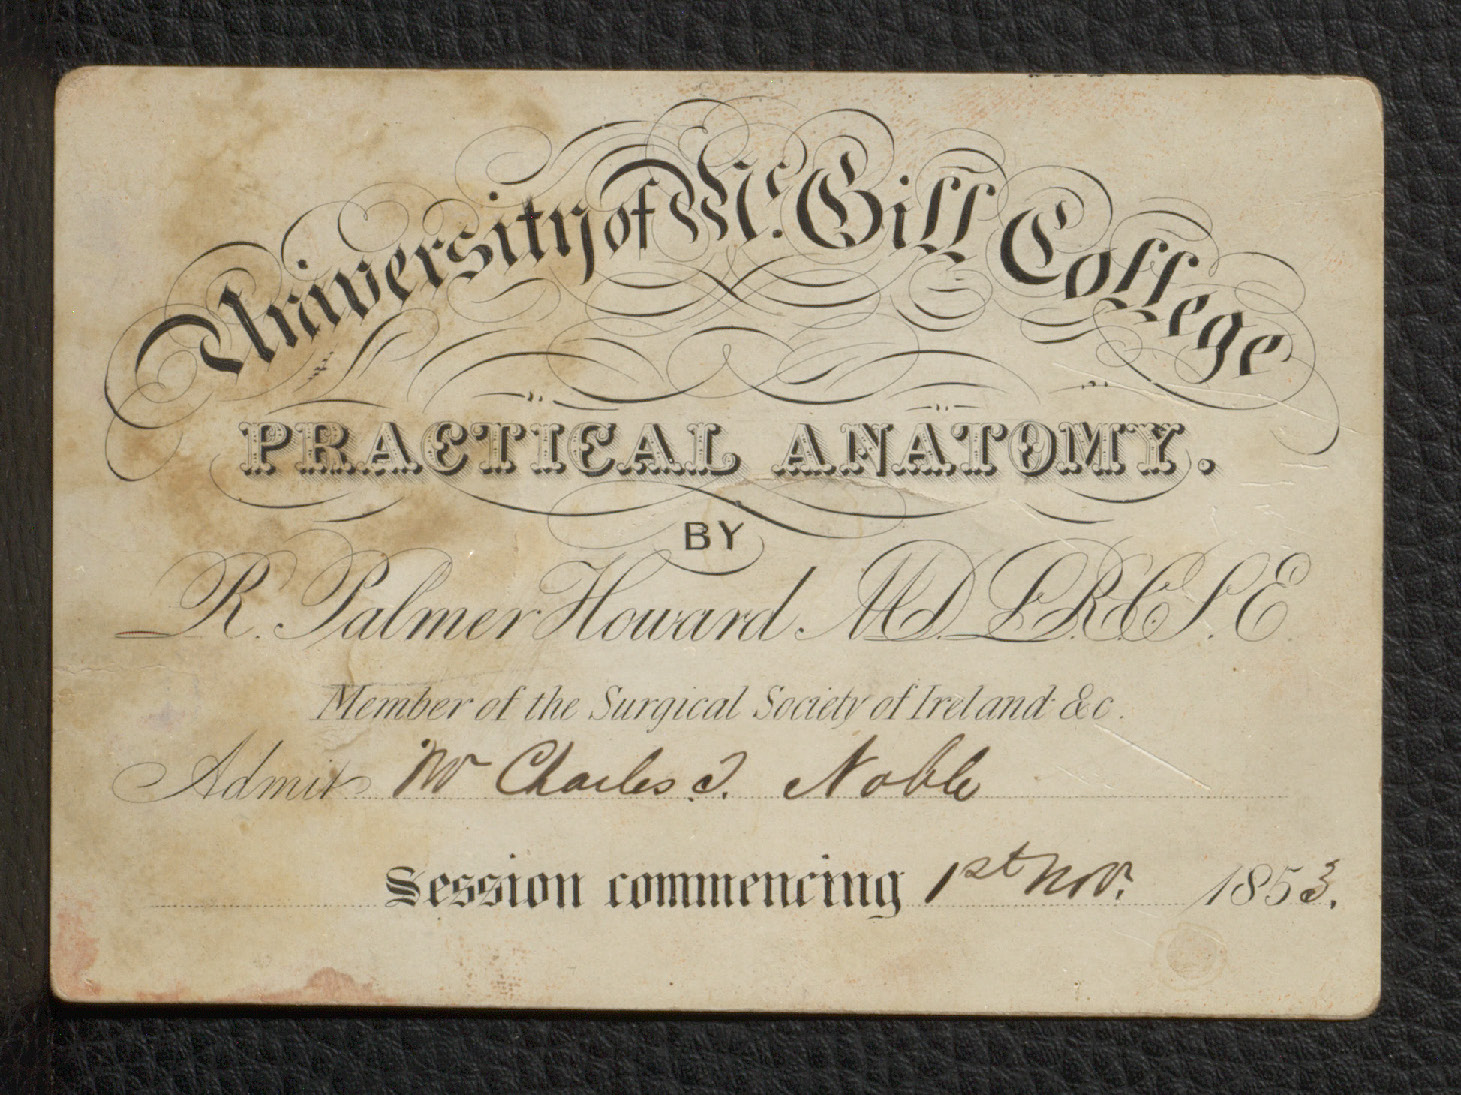 University of Mc. Gill College
PRACTICAL ANATOMY.
BY
R. Palmer Howard. M.D. L.R.C.S.E.
Member of the Surgical Society of Ireland &c.
Admit Mr Charles J. Noble
Session commencing 1st Nov. 1853.